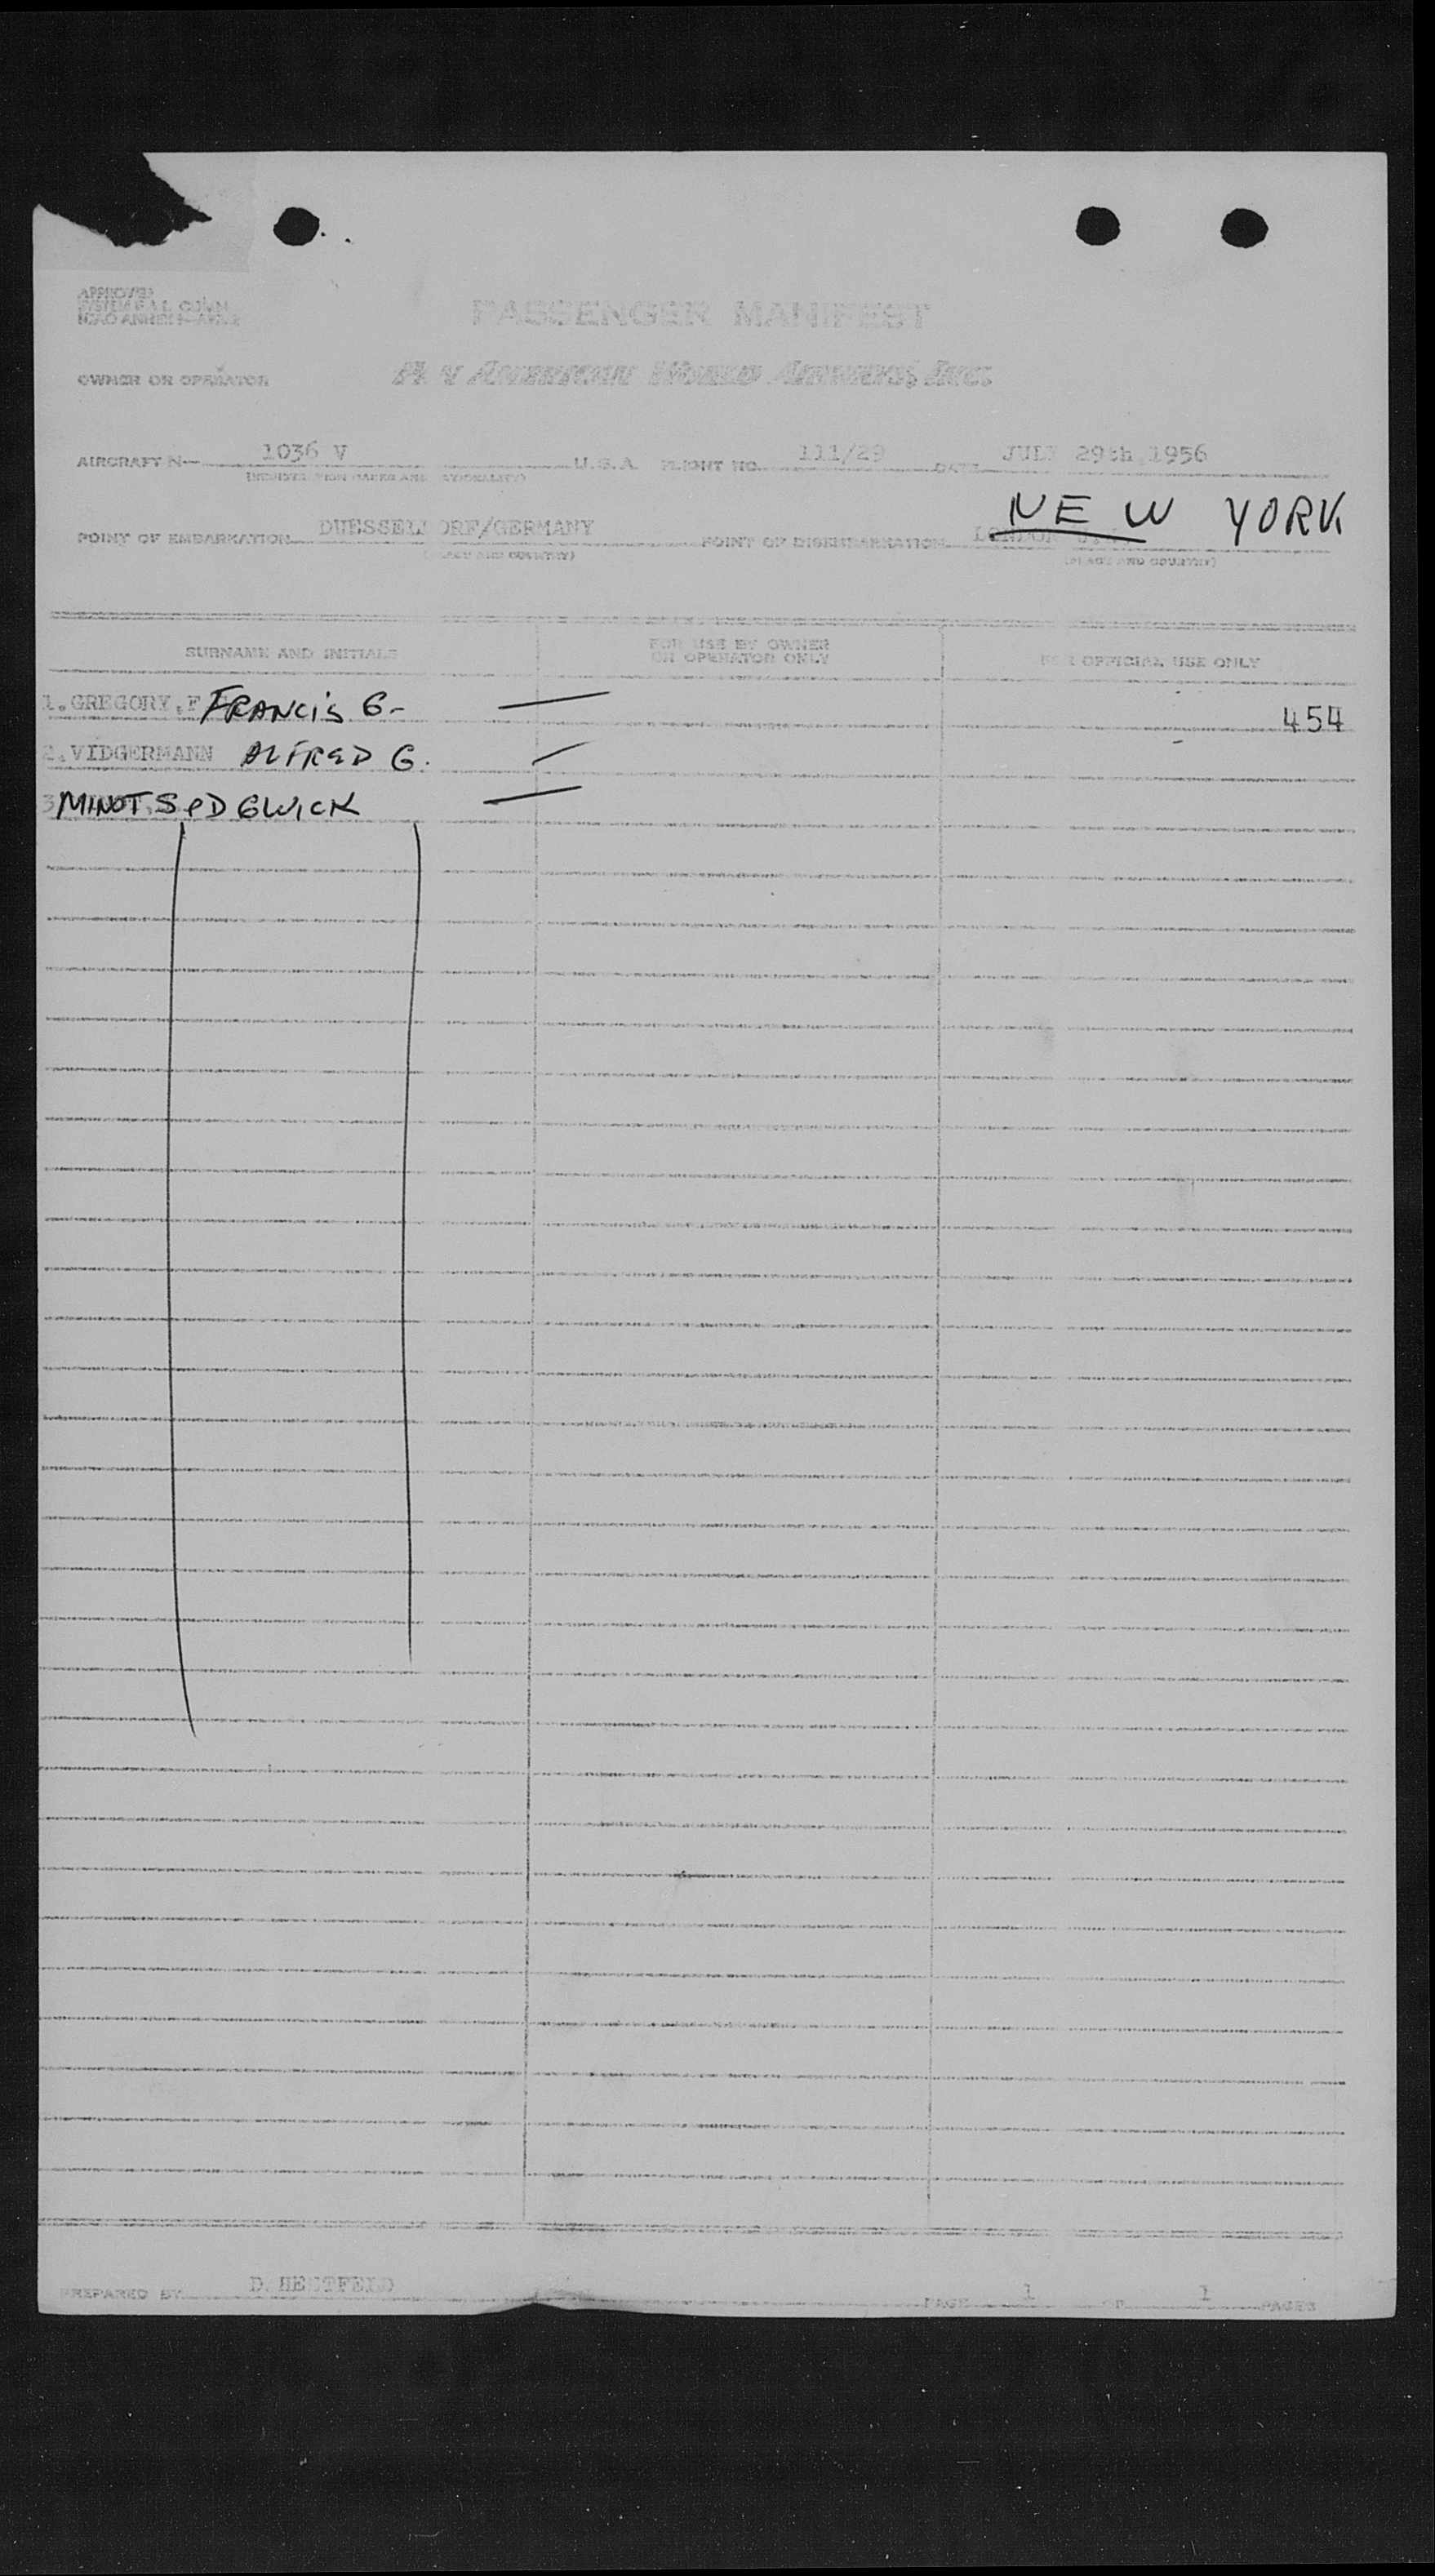 APPROVED
PASSENGER MANIFEST
OWNER OR OPERATOR
AMERICAN WORLD AIRWAYS, INC.
AIRCRAFT N— 1036 V U.S.A. FLIGHT NO. 111/29 DATE JULY 29th, 1956
NEW YORK
POINT OF EMBARKATION DUESSELDORF/GERMANY POINT OF DISEMBARKATION LONDON
(PLACE AND COUNTRY) (PLACE AND COUNTRY)
SURNAME AND INITIALS FOR USE BY OWNER OR OPERATOR ONLY FOR OFFICIAL USE ONLY
1. GREGORY, F FRANCIS G. — 454
2. VIDGERMANN ALFRED G. —
3 MINOT SEDGWICK —
PREPARED BY D. PAGE 1 OF 1 PAGES